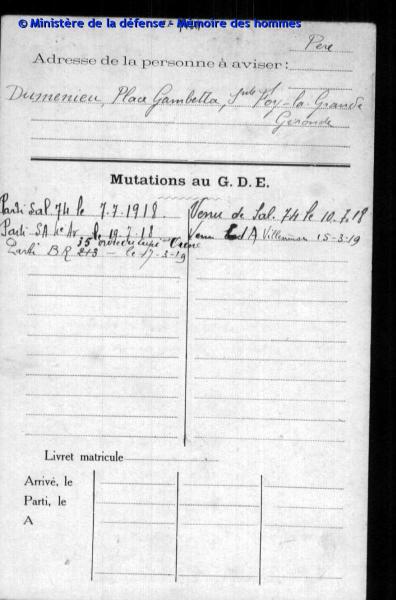 © Ministère de la défense - Mémoire des hommes
Père
Adresse de la personne à aviser :
Dumenieu, Place Gambetta, Ste Foy-la-Grande
Gironde
Mutations au G. D. E.
Parti Sal 74 le 7.7.1918. Venu de Sal. 74 le 10.7.18
Parti SA 4e Ar le 19.7.18 Venu d A Villeneuve 15-3-19
35
Parti BR 213 - le 17-3-19
Livret matricule
Arrivé, le
Parti, le
A